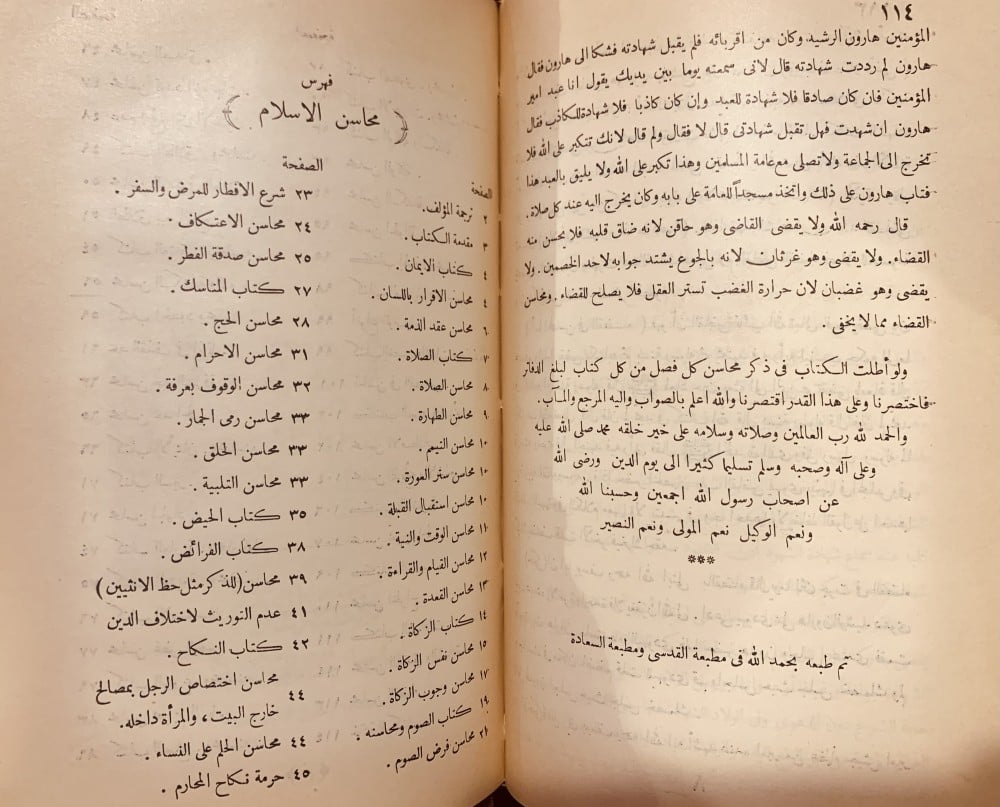 ١١٤
المؤمنين هارون الرشيد وكان من اقربائه فلم يقبل شهادته فشكا الى هارون فقال
هارون لم رددت شهادته قال لانى سمعته يوما بين يديك يقول انا عبد امير
المؤمنين فان كان صادقا فلا شهادة للعبد وإن كان كاذبا فلا شهادة للكاذب فقال
هارون ان شهدت فهل تقبل شهادتى قال لا فقال ولم قال لانك تتكبر على الله فلا
تخرج الى الجماعة ولا تصلى مع عامة المسلمين وهذا تكبر على الله ولا يليق بالعبد هذا
فتاب هارون على ذلك واتخذ مسجداً للعامة على بابه وكان يخرج اليه عند كل صلاة.
قال رحمه الله ولا يقضى القاضى وهو حاقن لانه ضاق قلبه فلا يحسن منه
القضاء. ولا يقضى وهو غرثان لانه بالجوع يشتد جوابه لاحد الخصمين. ولا
يقضى وهو غضبان لان حرارة الغضب تستر العقل فلا يصلح للقضاء. ومحاسن
القضاء مما لا يخفى.
ولو أطلت الكتاب فى ذكر محاسن كل فصل من كل كتاب لبلغ الدفاتر
فاختصرنا وعلى هذا القدر اقتصرنا والله اعلم بالصواب واليه المرجع والمآب.
والحمد لله رب العالمين وصلاته وسلامه على خير خلقه محمد صلى الله عليه
وعلى آله وصحبه وسلم تسليما كثيرا الى يوم الدين ورضى الله
عن اصحاب رسول الله اجمعين وحسبنا الله
ونعم الوكيل نعم المولى ونعم النصير
***
تم طبعه بحمد الله فى مطبعة القدسى ومطبعة السعادة
فهرس
﴿ محاسن الاسلام ﴾
الصفحة
٢ ترجمة المؤلف.
٣ مقدمة الكتاب.
٤ كتاب الايمان.
٤ محاسن الاقرار باللسان.
٦ محاسن عقد الذمة.
٧ كتاب الصلاة.
٨ محاسن الصلاة.
٩ محاسن الطهارة.
١٠ محاسن التيمم.
١٠ محاسن ستر العورة.
١٠ محاسن استقبال القبلة.
١١ محاسن الوقت والنية.
١٢ محاسن القيام والقراءة.
١٣ محاسن القعدة.
١٤ كتاب الزكاة.
١٥ محاسن نفس الزكاة.
١٧ محاسن وجوب الزكاة.
١٩ كتاب الصوم ومحاسنه.
٢١ محاسن فرض الصوم.
الصفحة
٢٣ شرع الافطار للمرض والسفر.
٢٤ محاسن الاعتكاف.
٢٥ محاسن صدقة الفطر.
٢٧ كتاب المناسك.
٢٨ محاسن الحج.
٣١ محاسن الاحرام.
٣٢ محاسن الوقوف بعرفة.
٣٣ محاسن رمى الجمار.
٣٣ محاسن الحلق.
٣٣ محاسن التلبية.
٣٥ كتاب الحيض.
٣٨ كتاب الفرائض.
٣٩ محاسن (للذكر مثل حظ الانثيين)
٤١ عدم التوريث لاختلاف الدين
٤٢ كتاب النكاح.
٤٤ محاسن اختصاص الرجل بمصالح
خارج البيت، والمرأة داخله.
٤٤ محاسن الحلم على النساء.
٤٥ حرمة نكاح المحارم.